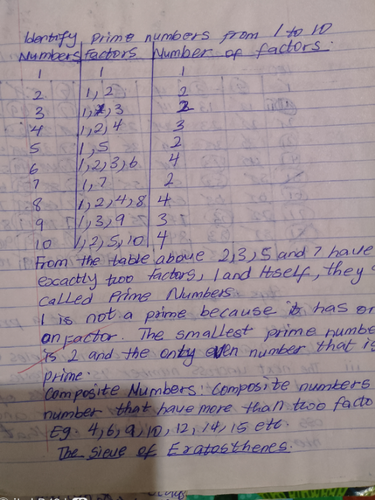 Identify prime numbers from 1 to 10
Numbers Factors Number of factors.
1 1 1
2 1,2 2
3 1,3 2
4 1,2,4 3
5 1,5 2
6 1,2,3,6 4
7 1,7 2
8 1,2,4,8 4
9 1,3,9 3
10 1,2,5,10 4
From the table above 2,3,5 and 7 have
exactly two factors, 1 and itself, they
called Prime Numbers.
1 is not a prime because it has
factor. The smallest prime numbe
is 2 and the only even number that is
prime.
Composite Numbers: Composite numbers
number that have more than two facto
Eg. 4,6,9,10,12,14,15 etc.
The Sieve of Eratosthenes.